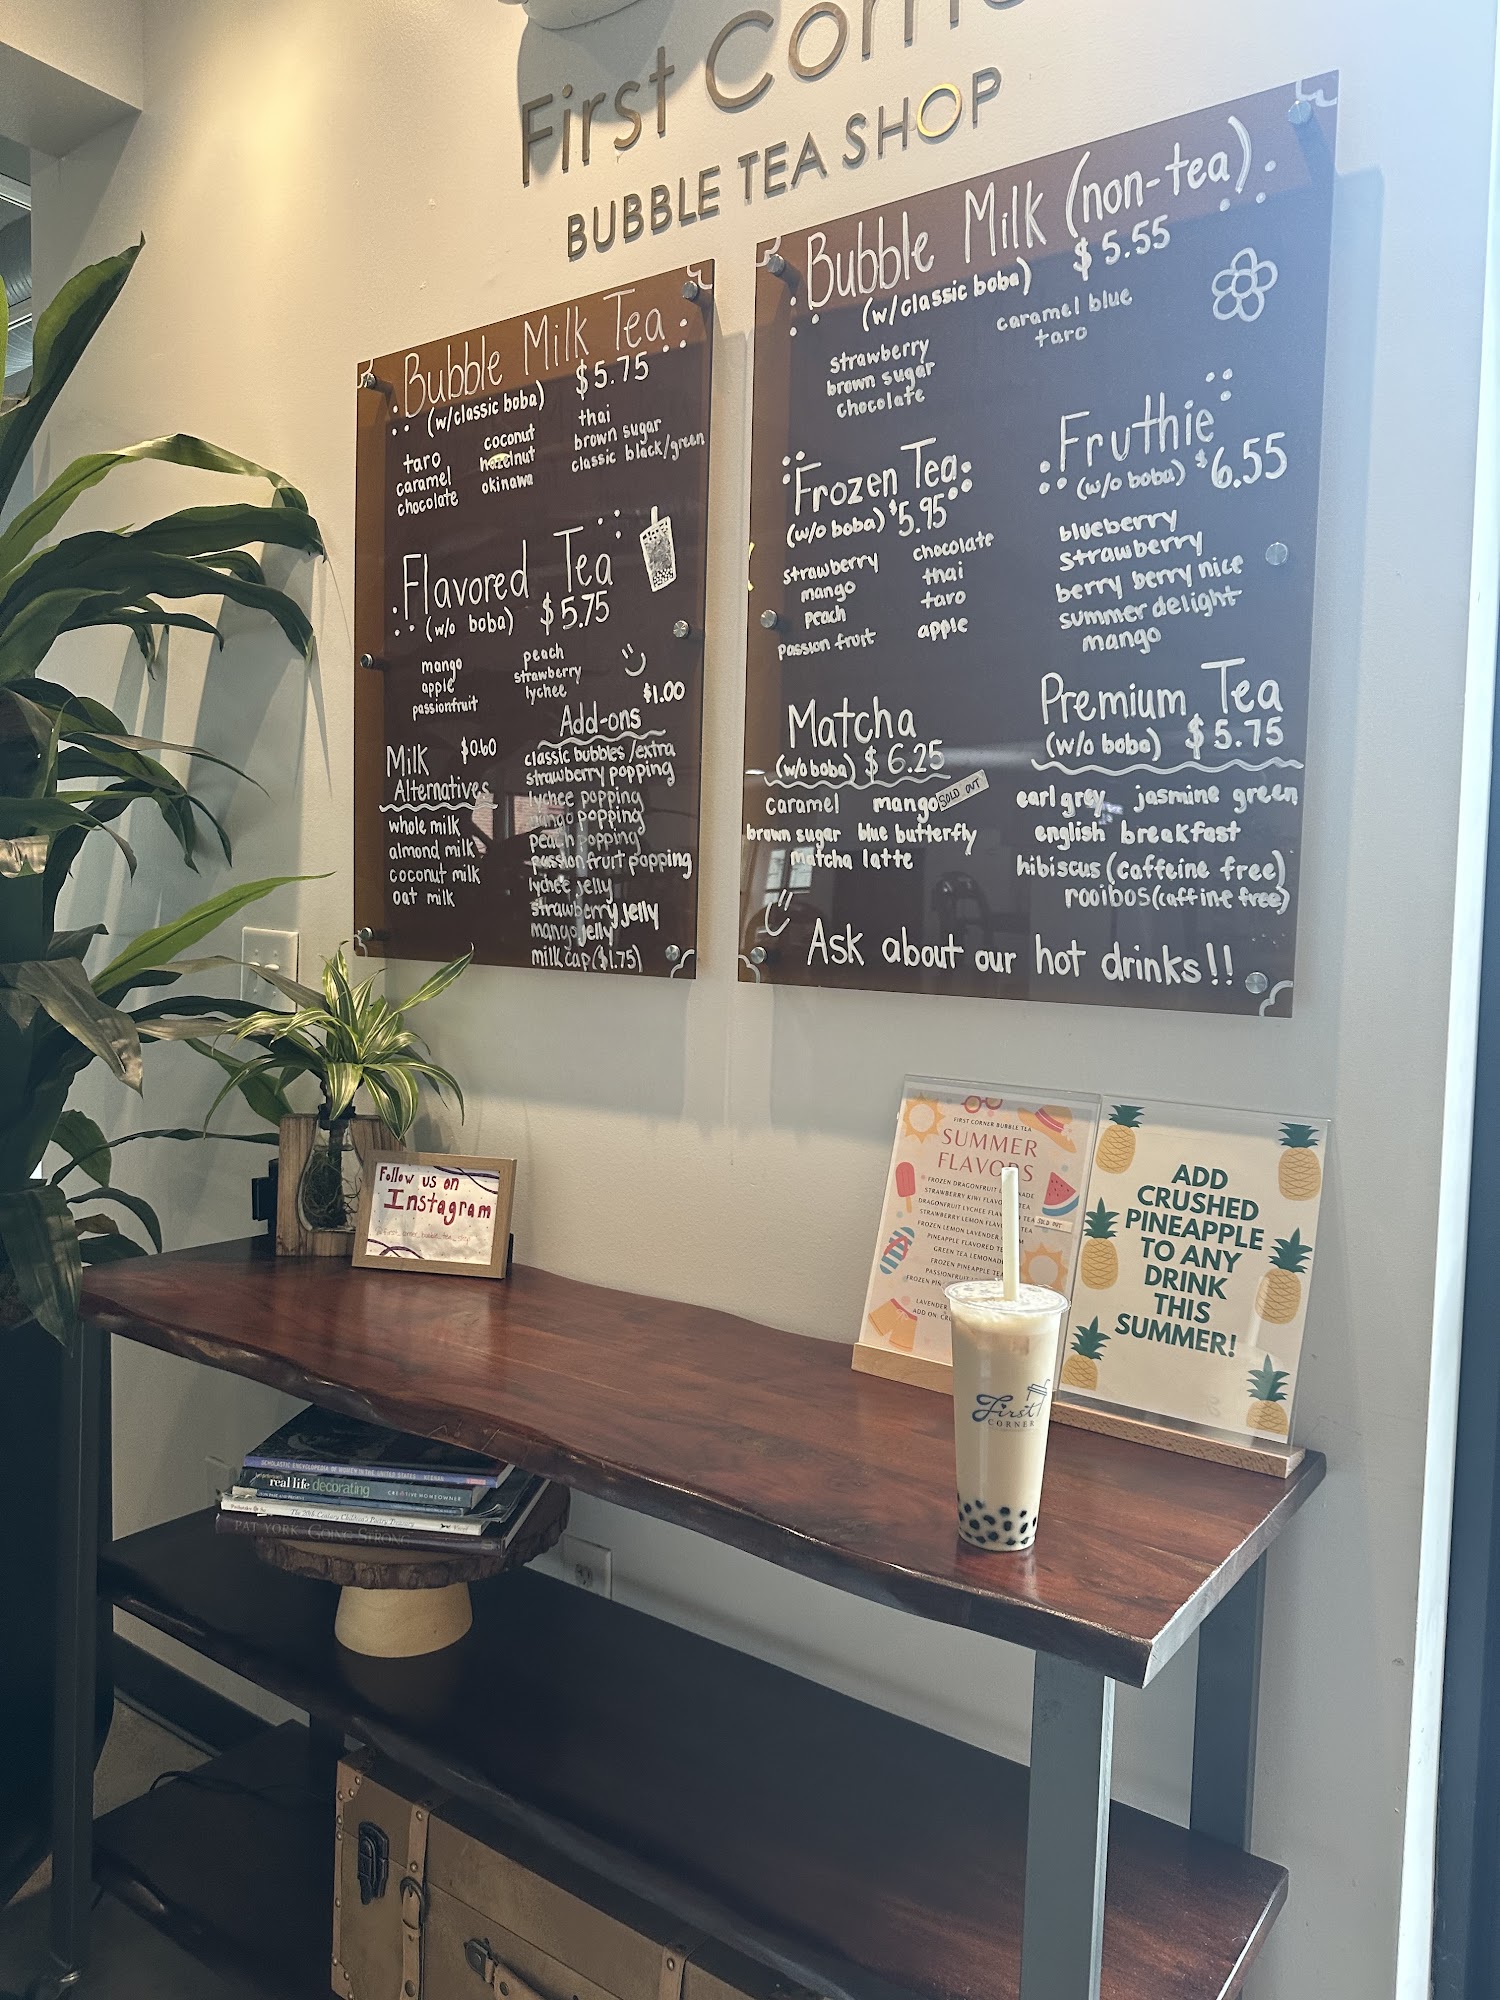 First Corne
BUBBLE TEA SHOP
Bubble Milk Tea
(w/classic boba) $5.75
taro
caramel
chocolate
coconut
hazelnut
okinawa
thai
brown sugar
classic black/green
Flavored Tea
(w/o boba) $5.75
mango
apple
passionfruit
peach
strawberry
lychee
Milk $0.60
Alternatives
whole milk
almond milk
coconut milk
oat milk
$1.00
Add-ons
classic bubbles/extra
strawberry popping
lychee popping
mango popping
peach popping
passion fruit popping
lychee jelly
strawberry jelly
mango jelly
milk cap ($1.75)
Bubble Milk (non-tea)
(w/classic boba) $5.55
strawberry
brown sugar
chocolate
caramel blue
taro
Frozen Tea
(w/o boba) $5.95
strawberry
mango
peach
passion fruit
chocolate
thai
taro
apple
Fruthie
(w/o boba) $6.55
blueberry
strawberry
berry berry nice
summer delight
mango
Matcha
(w/o boba) $6.25
caramel mango SOLD OUT
brown sugar blue butterfly
matcha latte
Premium Tea
(w/o boba) $5.75
earl grey jasmine green
english breakfast
hibiscus (caffeine free)
rooibos (caffine free)
Ask about our hot drinks!!
Follow us on
Instagram
FIRST CORNER BUBBLE TEA
SUMMER
FLAVORS
FROZEN DRAGONFRUIT
STRAWBERRY KIWI TEA
DRAGONFRUIT LYCHEE TEA SOLD OUT
STRAWBERRY LEMON TEA
FROZEN LEMON LAVENDER
PINEAPPLE FLAVORED
GREEN TEA LEMONADE
FROZEN PINEAPPLE TEA
PASSIONFRUIT
FROZEN
LAVENDER
ADD ON
ADD
CRUSHED
PINEAPPLE
TO ANY
DRINK
THIS
SUMMER!
First
CORNER
SCHOLASTIC ENCYCLOPEDIA OF WOMEN IN THE UNITED STATES
real life decorating CREATIVE HOMEOWNER
The 20th Century Children's Poetry Treasury
PAT YORK GOING STRONG